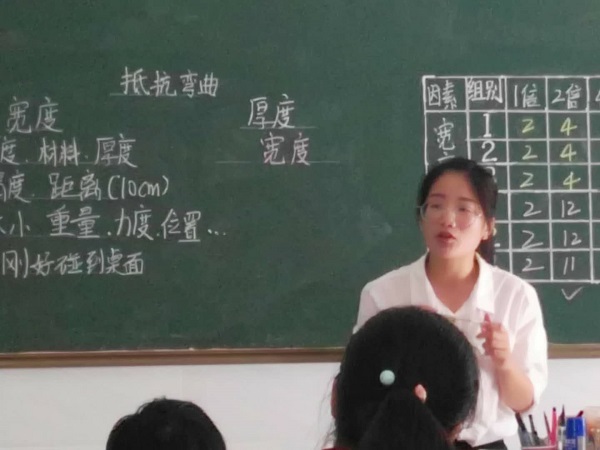 抵抗弯曲
宽度
度、材料、厚度
度、距离(10cm)
小、重量、力度、位置...
刚好碰到桌面
厚度
宽度
因素 组别 1倍 2倍
宽 1 2 4
2 2 4
2 4
2 12
2 12
2 11